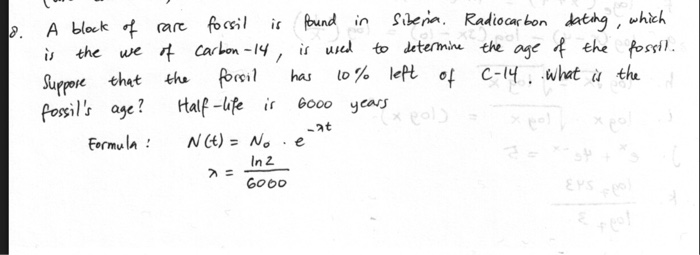 8. A block of rare fossil is found in Siberia. Radiocarbon dating, which
is the use of Carbon-14, is used to determine the age of the fossil.
Suppose that the fossil has 10% left of C-14. What is the
fossil's age? Half-life is 6000 years
Formula : N(t) = N₀ . e^-λt
λ = ln 2 / 6000